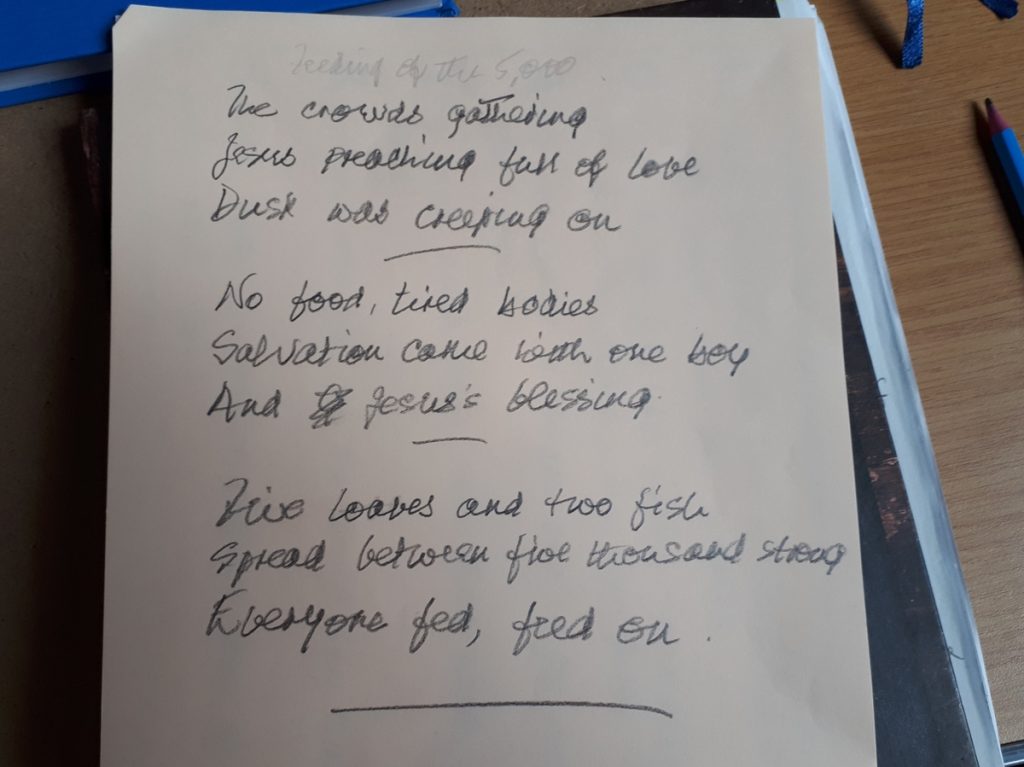 Feeding of the 5,000
The crowds gathering
Jesus preaching full of love
Dusk was creeping on
No food, tired bodies
Salvation came with one boy
And Jesus's blessing.
Five loaves and two fish
Spread between five thousand strong
Everyone fed, feed on.